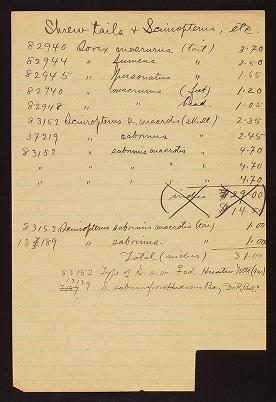 Shrew tails & Sciuropterus, etc.
82940 Sorex macrurus (tail) 3.70
82944 " fumeus " 2.50
82945 " personatus " 1.65
82940 " macrurus (foot) 1.20
82948 " " head. 1.05
83152 Sciuropterus s. macrotis (skull) 2.35
37219 " sabrinus " 2.45
83152 " sabrinus macrotis " 4.70
" " " " " 4.70
" " " " " 4.70
(inches) $29.00
$14.
83152 Sciuropterus sabrinus macrotis (ear) 1.00
189 " sabrinus. " 1.00
Total (inches) 31.00
83152 Type of S. s. m. fad. Hunter Mtn
S. sabrinus from Hudsons Bay, Dr. R. Bell